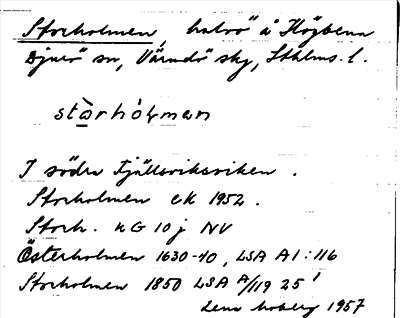 Storholmen, halvö å Högbena
Djurö sn, Värmdö skg, Sthlms l.
stòrhól̥mən
I södra Fjällsviksviken.
Storholmen ek 1952.
Storh. kG 10 j NV
Österholmen 1630-40, LSA A1:116
Storholmen 1850 LSA A/119 25'
Lena Moberg 1957